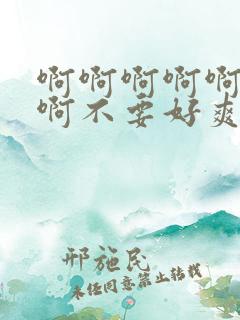 啊啊啊啊啊
啊不要好爽
邢施民
未经同意禁止转载